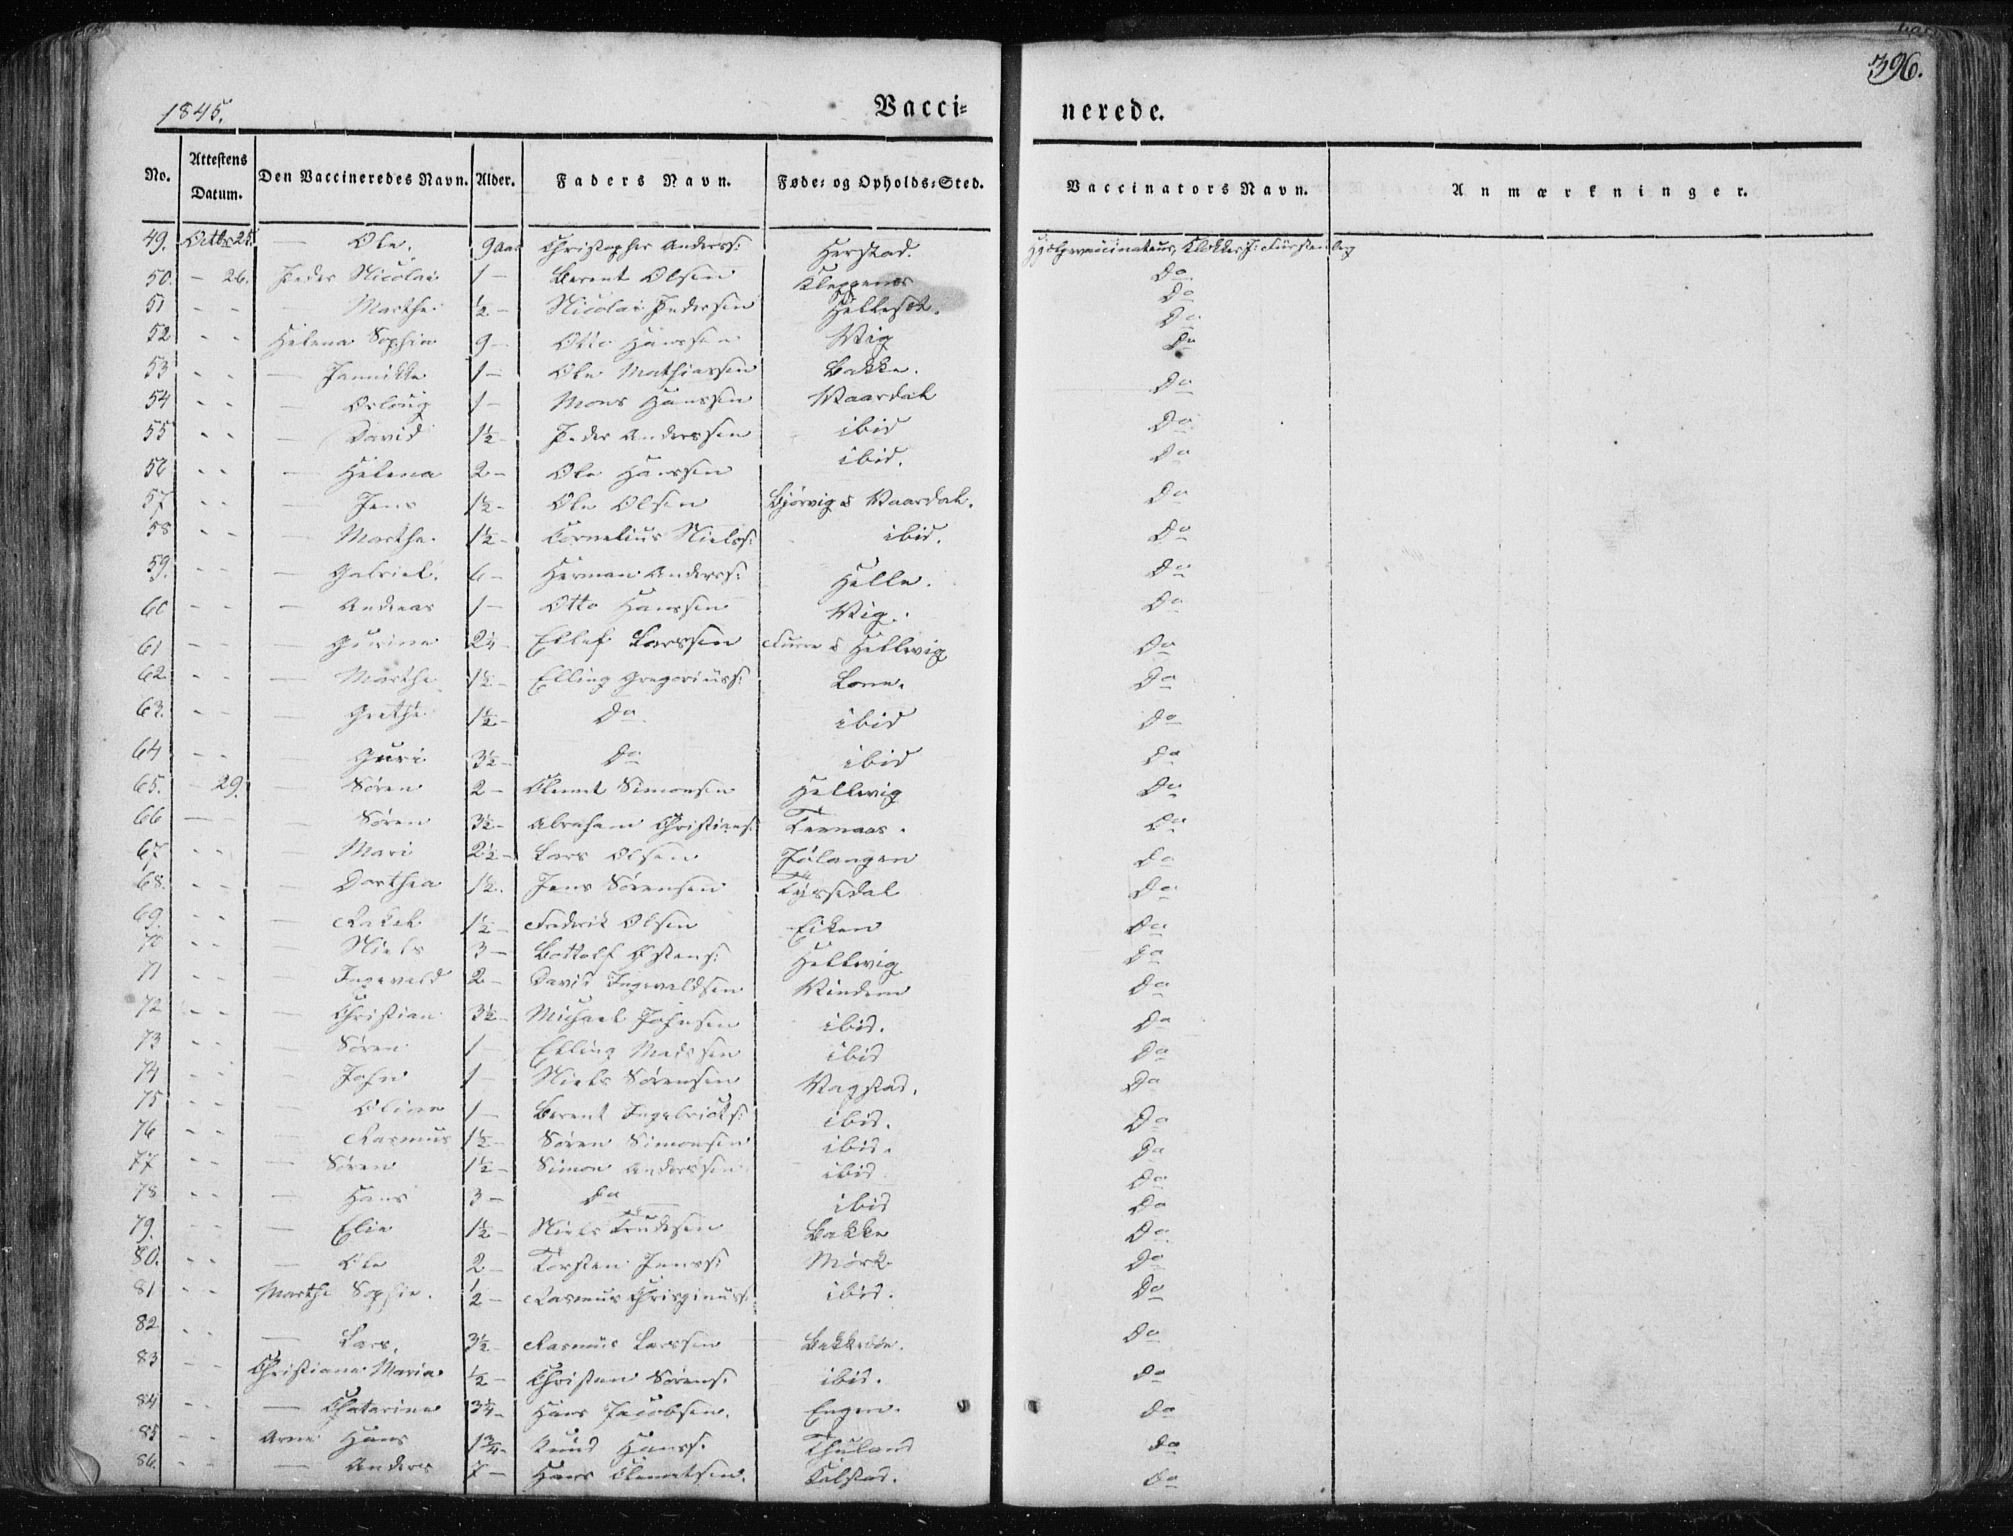 396.
1845.
Vacci= nerede.
No. Attestens Datum. Den Vaccineredes Navn. Alder. Faders Navn. Føde= og Opholds=Sted. Vaccinators Navn. Anmærkninger.
49. Octbr 25. — Ole. 9 Aar Christopher Anderss: Herstad. Hjelpevaccinateur, Klokker J. Fürstenberg
50. - 26. Peder Nicolai 1 — Berent Olsen Kleppenes Do
51 - - — Marthe ½ — Nicolai Pedersen Hellesøe. Do
52 - - Helena Sophia 9 — Otto Hanssen Vig Do
53 - - — Jannikke 1 — Ole Mathiassen Bakke. Do
54 - - — Osloug 1 — Mons Hanssen Vaardal Do
55 - - — David 1½ — Peder Anderssen ibid Do
56 - - — Helena 2 — Ole Hanssen ibid. Do
57 - - — Jens 1½ — Ole Olsen Bjørvig & Vaardal. Do
58 - - — Marthe 1½ — Cornelius Nielss: ibid. Do
59. - - — Gabriel. 6 — Herman Anderss: Helle. Do
60 - - — Andreas 1 — Otto Hanssen Vig. Do
61 - - — Gurine 2¼ — Ellef Larssen Furre & Hellevig Do
62. - - — Marthe 1½ — Elling Gregoriuss: Lone. Do
63. - - — Grethe 1½ — Do ibid Do
64 - - — Guri 3½ — Do ibid Do
65. - 29. — Søren 2 — Clemet Simonsen Hellevig Do
66 — — Søren 3½ — Abraham Christians: Tennaas. Do
67. - - — Mari 2½ — Lars Olsen Jølangen Do
68. - - — Dorthea 1½. Jens Sørensen Tyssedal Do
69. - - — Rakel 1½ — Frederik Olsen Eiken Do
70 - - — Niels 3 — Bottolf Østens: Hellevig Do
71 - - — Ingevald 2 — David Ingevaldsen Vindem Do
72 - - — Christian 3½ — Michael Johnsen ibid. Do
73 - - — Søren 1 — Elling Madssen ibid Do
74 - - — John 1 — Niels Sørensen Vagstad. Do
75 - - — Oline 1 — Berent Ingebrigts: ibid. Do
76 - - — Rasmus 1½ — Søren Simonsen ibid. Do
77 - - — Søren 1½ — Simon Anderssen ibid Do
78 - - — Hans 3 — Do ibid Do
79. - - — Elie 1½ — Niels Knudsen Bakke Do
80. - - — Ole 2 — Torsten Jenss: Mørk Do
81 - - Marthe Sophie. ½ — Rasmus ibid. Do
82 - - — Lars. 3½ — Rasmus Larssen Bakkebøe. Do
83 - - Christiane Maria ½ — Christen Sørens: ibid. Do
84 - - — Chatarine 3¼ — Hans Jacobsen. Engen. Do
85 - - Arne Hans 1¾ — Knud Hanss: Thuland Do
86. - - — Anders 7 — Hans Clemetsen. Kalstad. Do